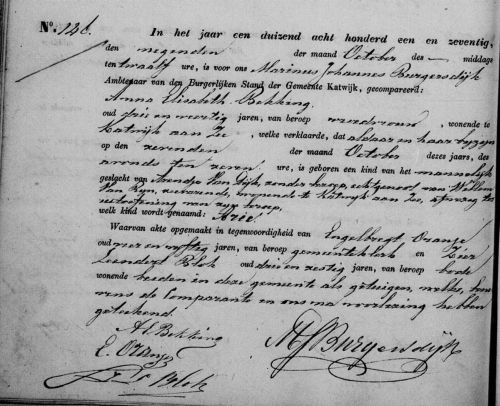 No. 126.
In het jaar een duizend acht honderd een en zeventig,
den negenden der maand October des — middags
ten twaalf ure, is voor ons Marinus Johannes Burgersdijk
Ambtenaar van den Burgerlijken Stand der Gemeente Katwijk, gecompareerd:
Anna Elisabeth Bekking
oud drie en veertig jaren, van beroep vroedvrouw, wonende te
Katwijk aan Zee, welke verklaarde, dat aldaar in haar bijzijn
op den zevenden der maand October dezes jaars, des
avonds ten zeven ure, is geboren een kind van het mannelijk
geslacht van Arendje van Dijk, zonder beroep, echtgenoot van Willem
van Rijn, zeevarende, wonende te Katwijk aan Zee, afwezig ter
uitoefening van zijn beroep,
welk kind wordt genaamd: Arie.
Waarvan akte opgemaakt in tegenwoordigheid van Engelbregt Oranje
oud vier en vijftig jaren, van beroep gemeenteklerk en
Leendert Blok oud drie en zestig jaren, van beroep bode
wonende beiden in deze gemeente als getuigen, welke, bene-
vens de Comparante en ons na voorlezing hebben
geteekend.
A E Bekking
E. Oranje
Blok
MJBurgersdijk